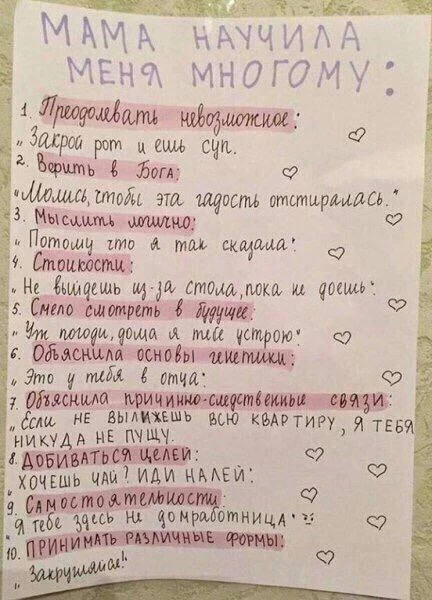 МАМА НАУЧИЛА
МЕНЯ МНОГОМУ:
1. Преодолевать невозможное:
„Закрой рот и ешь суп.
2. Верить в Бога:
„Молись, чтобы эта гадость отстиралась."
3. Мыслить логично:
„Потому что я так сказала":
4. Стойкости:
„Не выйдешь из-за стола, пока не доешь":
5. Смело смотреть в будущее:
„Уж погоди, дома я тебе устрою":
6. Объяснила основы генетики:
„Это у тебя в отца":
7. Объяснила причинно-следственные связи:
„Если НЕ ВЫЛИЖЕШЬ ВСЮ КВАРТИРУ, Я ТЕБЯ
НИКУДА НЕ ПУЩУ.
8. ДОБИВАТЬСЯ ЦЕЛЕЙ:
„ХОЧЕШЬ ЧАЙ? ИДИ НАЛЕЙ":
9. Самостоятельности:
„Я тебе здесь не домработница"
10. ПРИНИМАТЬ РАЗЛИЧНЫЕ ФОРМЫ:
„Закругляйся!"